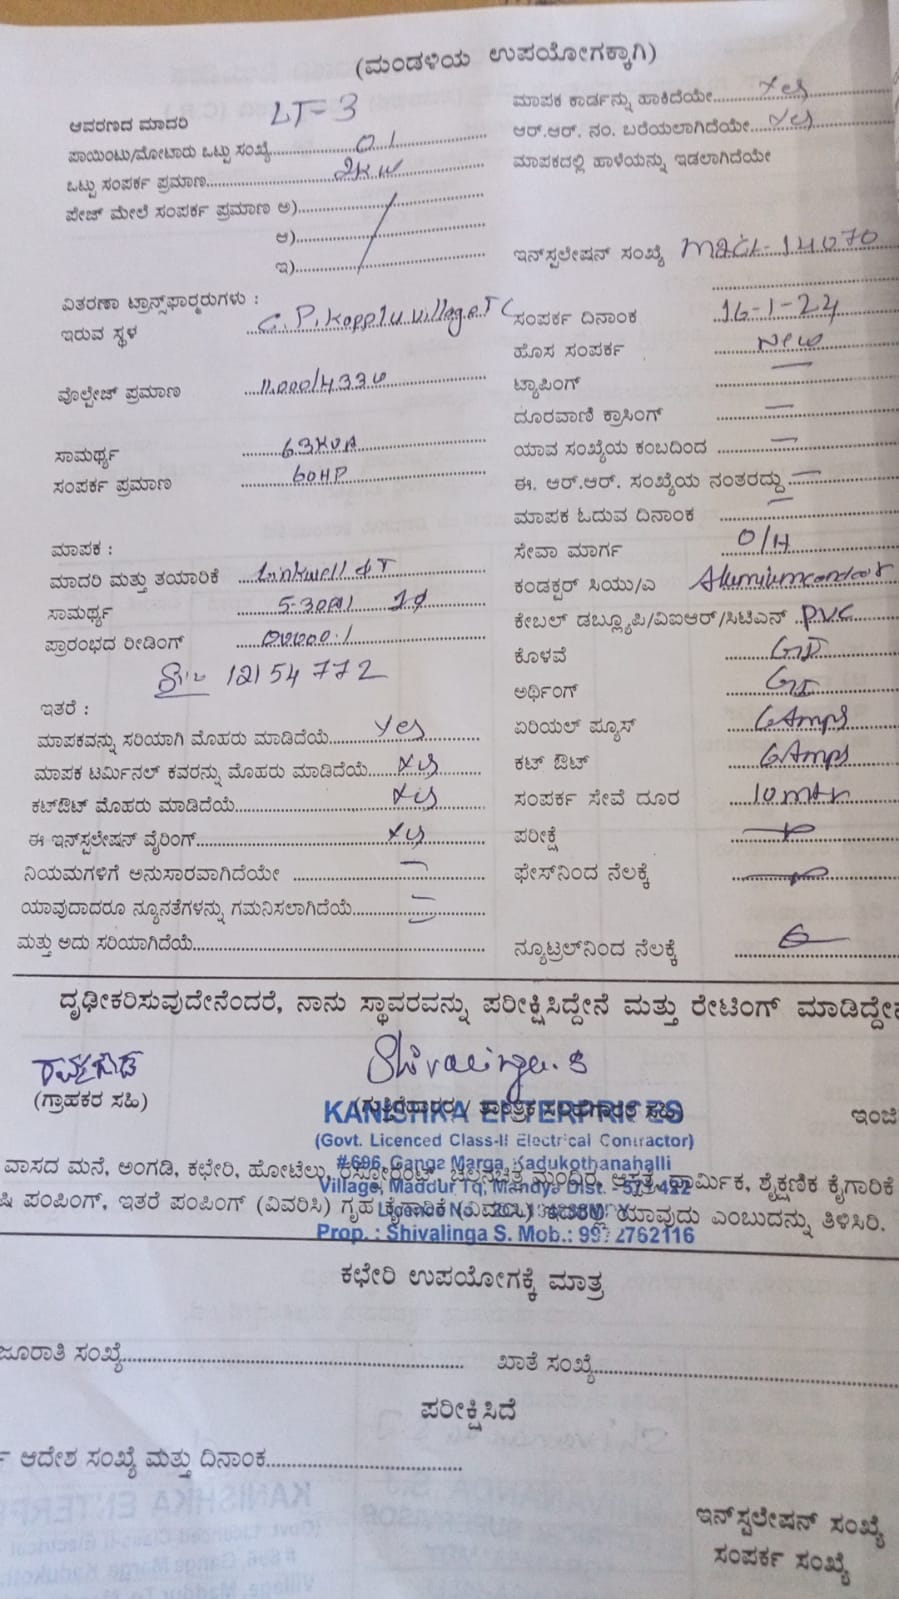 (ಮಂಡಳಿಯ ಉಪಯೋಗಕ್ಕಾಗಿ)
ಆವರಣದ ಮಾದರಿ LT-3
ಪಾಯಿಂಟು/ಮೋಟಾರು ಒಟ್ಟು ಸಂಖ್ಯೆ 01
ಒಟ್ಟು ಸಂಪರ್ಕ ಪ್ರಮಾಣ 2KW
ಪೇಜ್ ಮೇಲೆ ಸಂಪರ್ಕ ಪ್ರಮಾಣ ಅ)
ಆ)
ಇ)
ವಿತರಣಾ ಟ್ರಾನ್ಸ್‌ಫಾರ್ಮರುಗಳು :
ಇರುವ ಸ್ಥಳ C.P. Kopplu village TC
ವೊಲ್ಟೇಜ್ ಪ್ರಮಾಣ 11000/433
ಸಾಮರ್ಥ್ಯ 63KVA
ಸಂಪರ್ಕ ಪ್ರಮಾಣ 60HP
ಮಾಪಕ :
ಮಾದರಿ ಮತ್ತು ತಯಾರಿಕೆ Linkwell
ಸಾಮರ್ಥ್ಯ 5-30A 1φ
ಪ್ರಾರಂಭದ ರೀಡಿಂಗ್
12154772
ಇತರೆ :
ಮಾಪಕವನ್ನು ಸರಿಯಾಗಿ ಮೊಹರು ಮಾಡಿದೆಯೆ Yes
ಮಾಪಕ ಟರ್ಮಿನಲ್ ಕವರನ್ನು ಮೊಹರು ಮಾಡಿದೆಯೆ Yes
ಕಟ್‌ಔಟ್ ಮೊಹರು ಮಾಡಿದೆಯೆ Yes
ಈ ಇನ್‌ಸ್ಟಲೇಷನ್ ವೈರಿಂಗ್ Yes
ನಿಯಮಗಳಿಗೆ ಅನುಸಾರವಾಗಿದೆಯೇ —
ಯಾವುದಾದರೂ ನ್ಯೂನತೆಗಳನ್ನು ಗಮನಿಸಲಾಗಿದೆಯೆ
ಮತ್ತು ಅದು ಸರಿಯಾಗಿದೆಯೆ
ಮಾಪಕ ಕಾರ್ಡನ್ನು ಹಾಕಿದೆಯೇ Yes
ಆರ್.ಆರ್. ನಂ. ಬರೆಯಲಾಗಿದೆಯೇ Yes
ಮಾಪಕದಲ್ಲಿ ಹಾಳೆಯನ್ನು ಇಡಲಾಗಿದೆಯೇ
ಇನ್‌ಸ್ಟಲೇಷನ್ ಸಂಖ್ಯೆ 14070
ಸಂಪರ್ಕ ದಿನಾಂಕ 16-1-24
ಹೊಸ ಸಂಪರ್ಕ New
ಟ್ಯಾಪಿಂಗ್ —
ದೂರವಾಣಿ ಕ್ರಾಸಿಂಗ್ —
ಯಾವ ಸಂಖ್ಯೆಯ ಕಂಬದಿಂದ —
ಈ. ಆರ್.ಆರ್. ಸಂಖ್ಯೆಯ ನಂತರದ್ದು —
ಮಾಪಕ ಓದುವ ದಿನಾಂಕ —
ಸೇವಾ ಮಾರ್ಗ O/H
ಕಂಡಕ್ಟರ್ ಸಿಯು/ಎ
ಕೇಬಲ್ ಡಬ್ಲ್ಯೂಪಿ/ವಿಐಆರ್/ಸಿಟಿಎನ್ P.V.C
ಕೊಳವೆ GI
ಅರ್ಥಿಂಗ್ GI
ಏರಿಯಲ್ ಫ್ಯೂಸ್ 6 Amps
ಕಟ್ ಔಟ್ 6 Amps
ಸಂಪರ್ಕ ಸೇವೆ ದೂರ 10 mtr
ಪರೀಕ್ಷೆ
ಫೇಸ್‌ನಿಂದ ನೆಲಕ್ಕೆ
ನ್ಯೂಟ್ರಲ್‌ನಿಂದ ನೆಲಕ್ಕೆ
ದೃಢೀಕರಿಸುವುದೇನೆಂದರೆ, ನಾನು ಸ್ಥಾವರವನ್ನು ಪರೀಕ್ಷಿಸಿದ್ದೇನೆ ಮತ್ತು ರೇಟಿಂಗ್ ಮಾಡಿದ್ದೇನೆ
Shivalinga. S
(ಗ್ರಾಹಕರ ಸಹಿ)
KANISHKA ENTERPRICES
(Govt. Licenced Class-II Electrical Contractor)
#696, Ganga Marga, Kadukothanahalli
Village, Maddur Tq, Mandya Dist. - 571422
Prop. : Shivalinga S. Mob.: 9972762116
ಇಂಜಿ
ವಾಸದ ಮನೆ, ಅಂಗಡಿ, ಕಛೇರಿ, ಹೋಟೆಲು, ರೆಸ್ಟೋರೆಂಟ್, ಚಲನಚಿತ್ರ ಮಂದಿರ, ಆಸ್ಪತ್ರೆ, ಧಾರ್ಮಿಕ, ಶೈಕ್ಷಣಿಕ ಕೈಗಾರಿಕೆ
ಪಂಪಿಂಗ್, ಇತರೆ ಪಂಪಿಂಗ್ (ವಿವರಿಸಿ) ಗೃಹ ಕೈಗಾರಿಕೆ (ವಿವರಿಸಿ) ಇದರಲ್ಲಿ ಯಾವುದು ಎಂಬುದನ್ನು ತಿಳಿಸಿರಿ.
ಕಛೇರಿ ಉಪಯೋಗಕ್ಕೆ ಮಾತ್ರ
ಜೂರಾತಿ ಸಂಖ್ಯೆ
ಖಾತೆ ಸಂಖ್ಯೆ
ಪರೀಕ್ಷಿಸಿದೆ
ಆದೇಶ ಸಂಖ್ಯೆ ಮತ್ತು ದಿನಾಂಕ
ಇನ್‌ಸ್ಟಲೇಷನ್ ಸಂಖ್ಯೆ
ಸಂಪರ್ಕ ಸಂಖ್ಯೆ